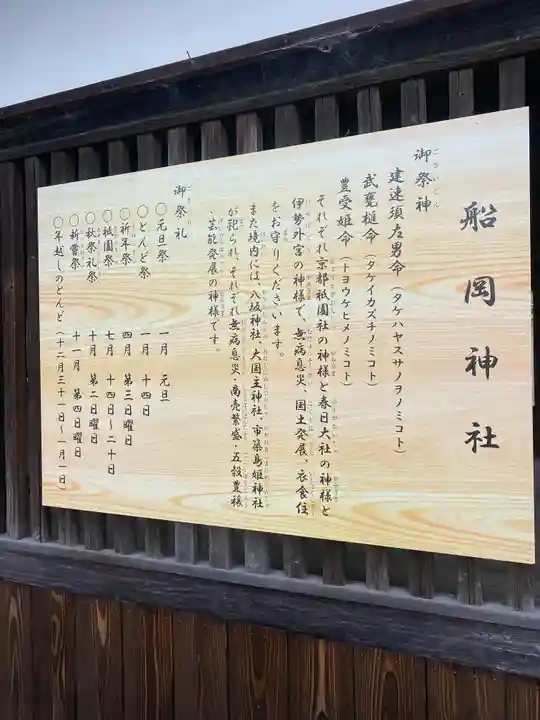 船岡神社
御祭神
建速須左男命（タケハヤスサノヲノミコト）
武甕槌命（タケイカズチノミコト）
豊受姫命（トヨウケヒメノミコト）
それぞれ京都祇園社の神様と春日大社の神様と
伊勢外宮の神様で、無病息災、国土発展、衣食住
をお守りくださいます。
また境内には、八坂神社、大国主神社、市築島姫神社
が祀られ、それぞれ無病息災・商売繁盛・五穀豊穣
・芸能発展の神様です。
御祭礼
○元旦祭 一月 元旦
○とんど祭 一月 十四日
○祈年祭 四月 第三日曜日
○祇園祭 七月 十四日～二十日
○秋祭礼祭 十月 第二日曜日
○新嘗祭 十一月 第四日曜日
○年越しのとんど（十二月三十一日～一月一日）